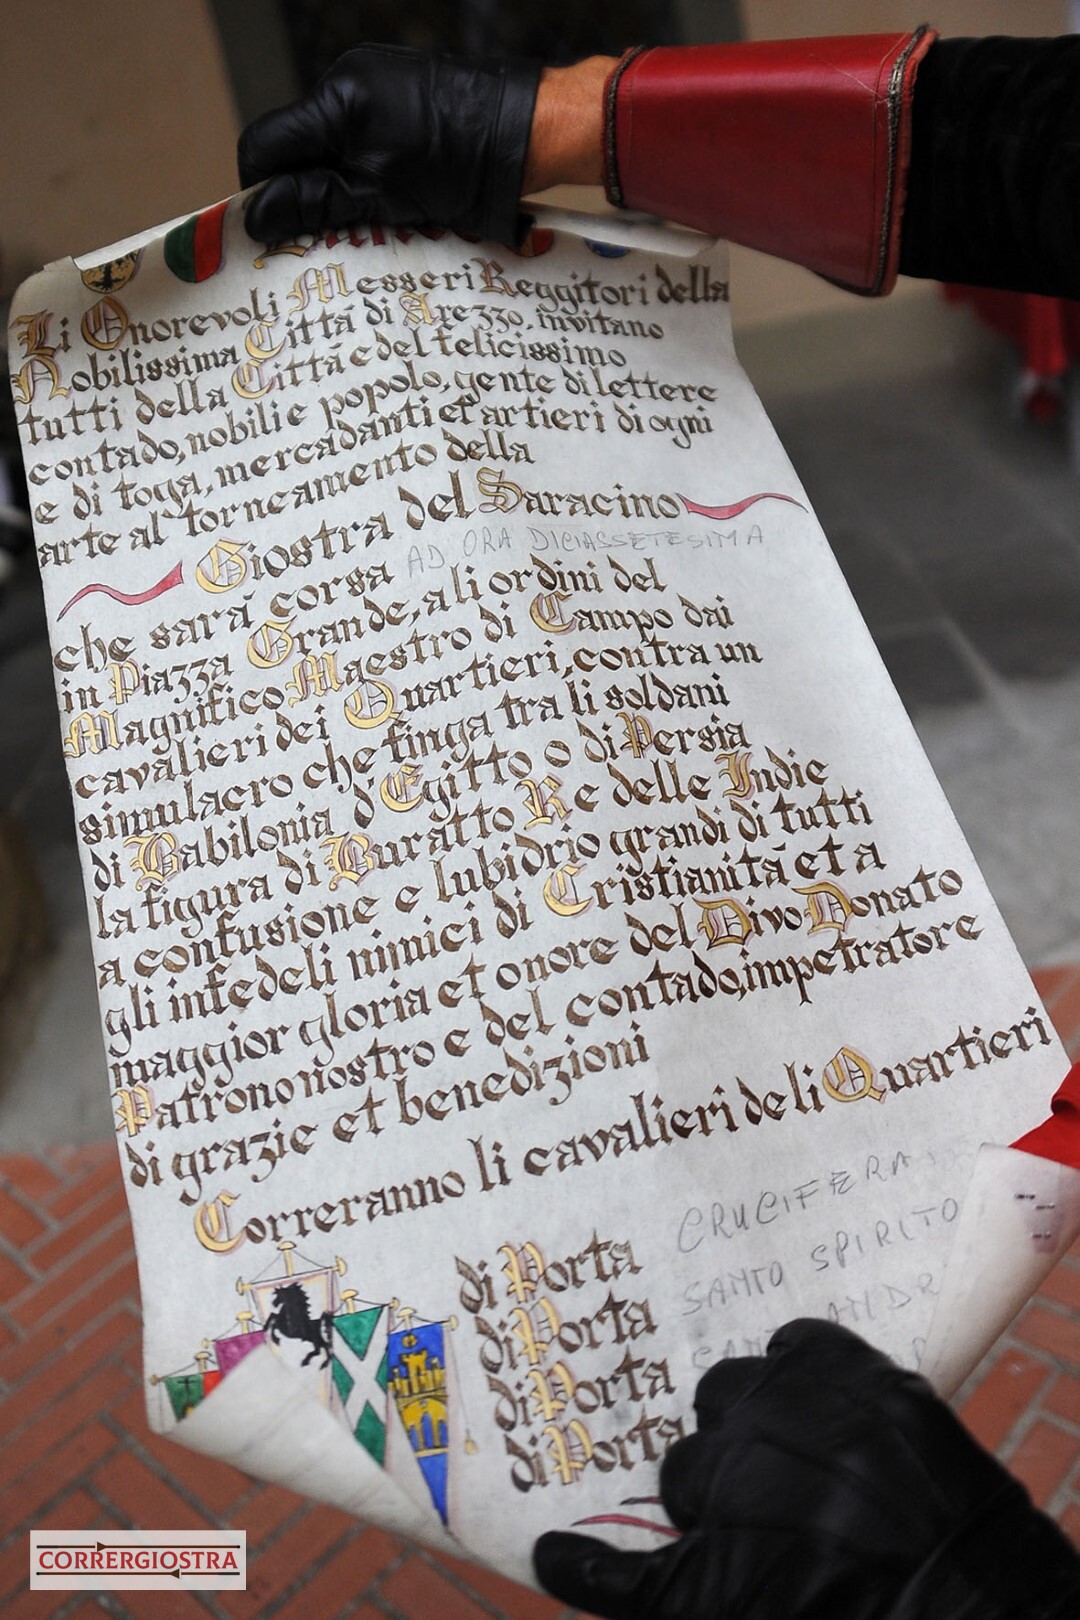 Li Onorevoli Messeri Reggitori della
Nobilissima Città di Arezzo, invitano
tutti della Città e del felicissimo
contado, nobili e popolo, gente di lettere
e di toga, mercadanti et artieri di ogni
arte al torneamento della
Giostra del Saracino
che sarà corsa AD ORA DICIASSETESIMA
in Piazza Grande, a li ordini del
Magnifico Maestro di Campo dai
cavalieri dei Quartieri, contra un
simulacro che finga tra li soldani
di Babilonia d'Egitto o di Persia
la figura di Buratto Re delle Indie
a confusione e lubidrio grandi di tutti
gli infedeli nimici di Cristianità et a
maggior gloria et onore del Divo Donato
Patrono nostro e del contado, impetratore
di grazie et benedizioni
Correranno li cavalieri de li Quartieri
di Porta CRUCIFERA
di Porta SANTO SPIRITO
di Porta
di Porta
CORRERGIOSTRA